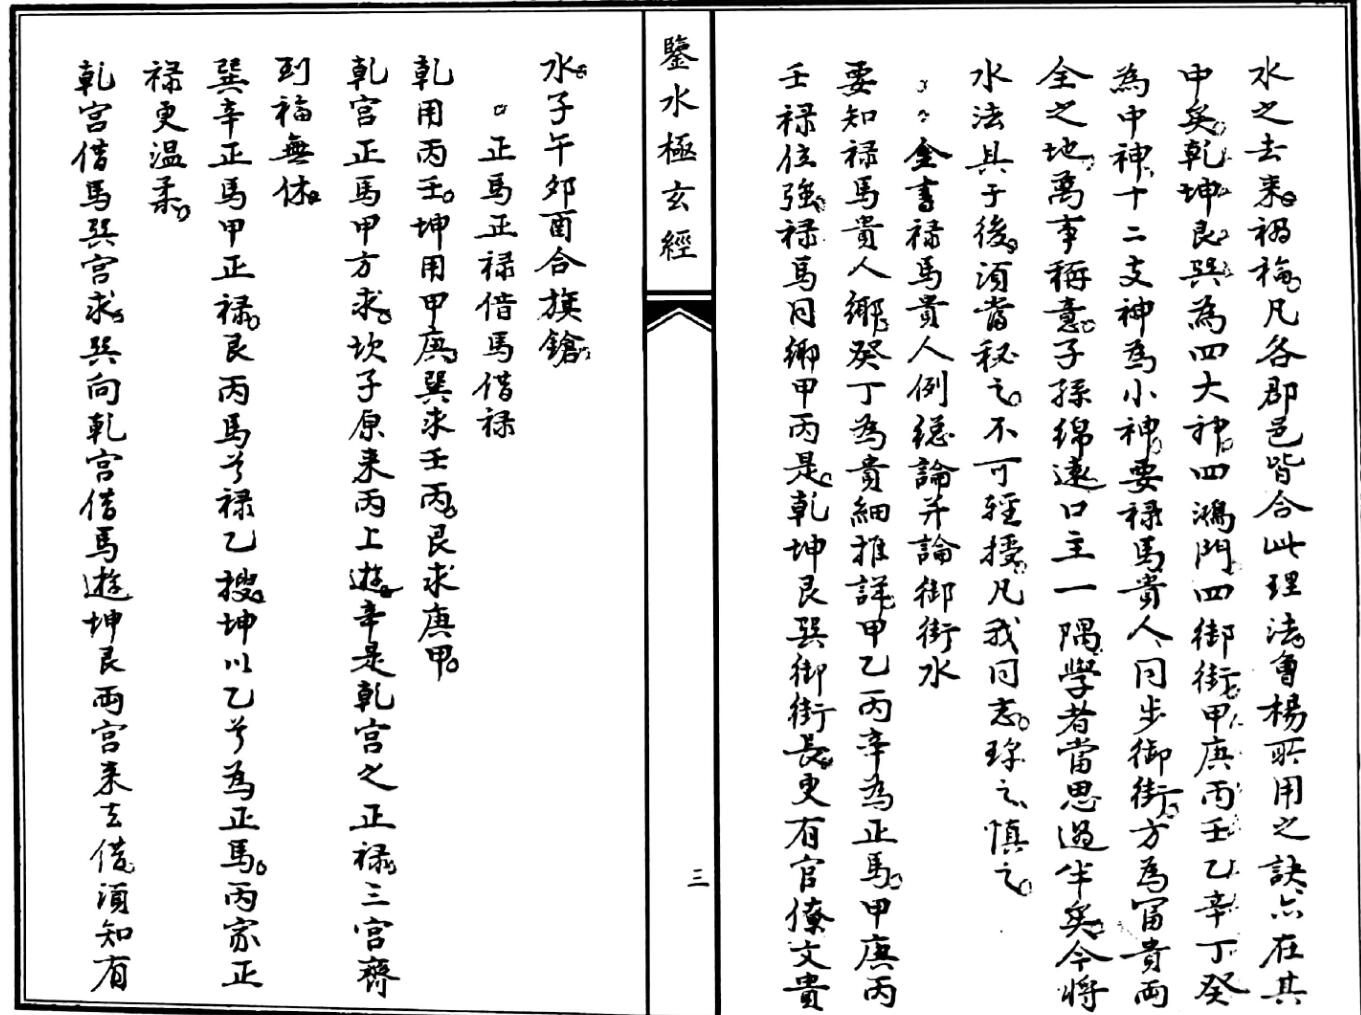 水之去来。禍福。凡各郡邑皆合此理法。曾楊所用之訣亦在其
中矣。乾坤艮巽為四大神。四鴻門四御街。甲庚丙壬乙辛丁癸
為中神。十二支神為小神。要禄馬貴人同步御街。方為富貴兩
全之地。萬事稱意。子孫綿遠。口主一隅。學者當思過半矣。今將
水法具于後。須當秘之。不可輕授。凡我同志。珍之慎之。
金書禄馬貴人例總論并論御街水
要知禄馬貴人鄉。癸丁為貴細推詳。甲乙丙辛為正馬。甲庚丙
壬禄位強。禄馬同鄉甲丙是。乾坤艮巽御街長。更有官僚文貴
鑒水極玄經
三
水。子午夘酉合旗鎗。
正馬正禄借馬借禄
乾用丙壬。坤用甲庚。巽求壬丙。艮求庚甲。
乾宫正馬甲方求。坎子原来丙上遊。辛是乾宫之正禄。三宫齊
到福無休。
巽辛正馬甲正禄。艮丙馬兮禄乙搜。坤以乙兮為正馬。丙家正
禄更温柔。
乾宫借馬巽宫求。巽向乾宫借馬遊。坤艮兩宫来去借。須知有